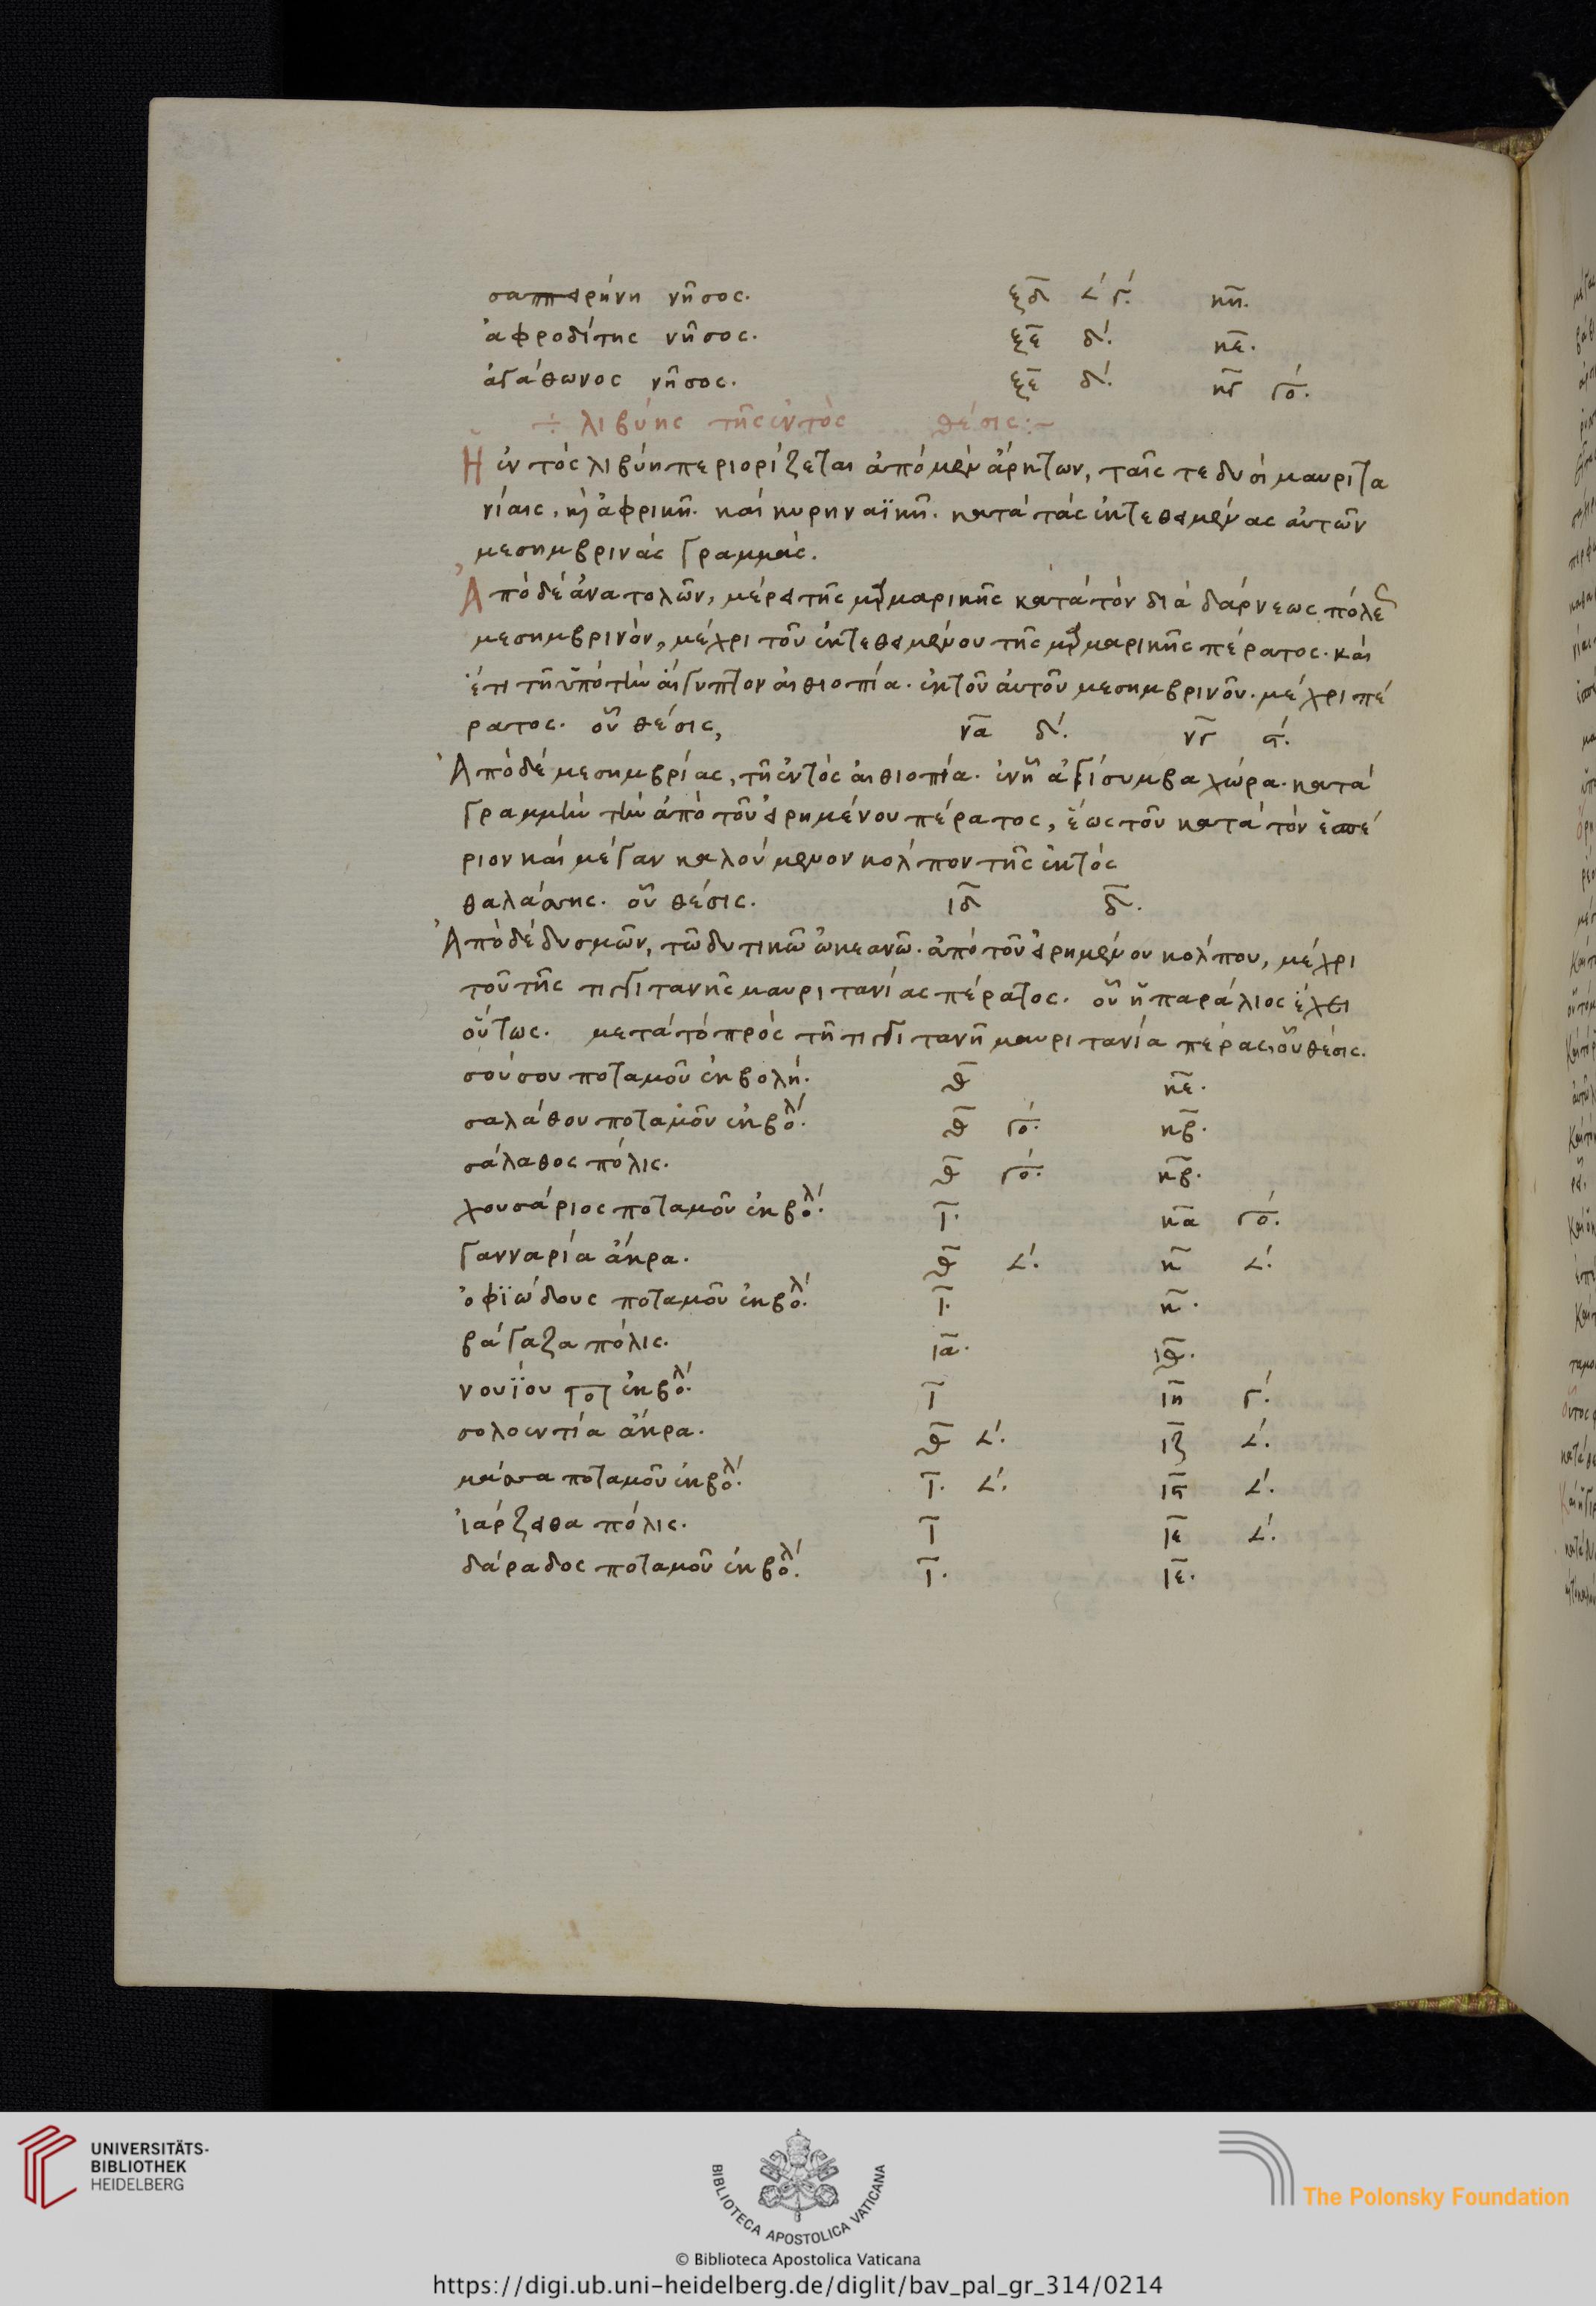 σαππειρήνη νῆσος. ξδ 𐅵΄ γ΄. κη.
ἀφροδίτης νῆσος. ξε δ΄. κε.
ἀγάθωνος νῆσος. ξε δ΄. κγ γο΄.
÷ λιβύης τῆς ἐντὸς θέσις:~
Ἡ ἐντὸς λιβύη περιορίζεται ἀπὸ μὲν ἄρκτων, ταῖς τε δυσὶ μαυριτα
νίαις, κὶ ἀφρικῆ. καὶ κυρηναϊκῆ. κατὰ τὰς ἐκτεθειμένας αὐτῶν
μεσημβρινὰς γραμμάς.
Ἀπὸ δὲ ἀνατολῶν, μέρει τῆς μαρμαρικῆς κατὰ τὸν διὰ δάρνεως πόλεως
μεσημβρινὸν, μέχρι τοῦ ἐκτεθειμένου τῆς μαρμαρικῆς πέρατος. καὶ
ἔτι τῆ ὑπὸ τὴν αἴγυπτον αἰθιοπία. ἐκ τοῦ αὐτοῦ μεσημβρινοῦ. μέχρι πέ
ρατος. οὗ θέσις, να δ΄. νγ ϛ΄.
Ἀπὸ δὲ μεσημβρίας, τῆ ἐντὸς αἰθιοπία. ἐν ἧ ἀγίσυμβα χώρα. κατὰ
γραμμὴν τὴν ἀπὸ τοῦ εἰρημένου πέρατος, ἕως τοῦ κατὰ τὸν ἑσπέ
ριον καὶ μέγαν καλούμενον κόλπον τῆς ἐκτὸς
θαλάσσης. οὗ θέσις. ιδ δ.
Ἀπὸ δὲ δυσμῶν, τῶ δυτικῶ ὠκεανῶ. ἀπὸ τοῦ εἰρημένου κόλπου, μέχρι
τοῦ τῆς τιγγιτανῆς μαυριτανίας πέρατος. οὗ ἡ παράλιος ἔχει
οὕτως. μετὰ τὸ πρὸς τῆ τιγγιτανῆ μαυριτανία πέρας, οὗ θέσις.
σούσου ποταμοῦ ἐκβολή. θ κε.
σαλάθου ποταμοῦ ἐκβολ΄. θ γο΄. κβ.
σάλαθος πόλις. θ γο΄. κβ.
χουσάριος ποταμοῦ ἐκβολ΄. ι. κα γο΄.
γανναρία ἄκρα. θ 𐅵΄. κ 𐅵΄.
ὀφϊώδους ποταμοῦ ἐκβολ΄. ι. κ.
βάγαζα πόλις. ια. ιθ.
νουΐου ποτ ἐκβολ΄. ι ιη γ΄.
σολοεντία ἄκρα. θ 𐅵΄. ιζ 𐅵΄.
μάσσα ποταμοῦ ἐκβολ΄. ι. 𐅵΄. ιϛ 𐅵΄.
ἰάρζειθα πόλις. ι ιε 𐅵΄.
δάραδος ποταμοῦ ἐκβολ΄. ι. ιε.
UNIVERSITÄTS-
BIBLIOTHEK
HEIDELBERG
BIBLIOTECA APOSTOLICA VATICANA
The Polonsky Foundation
© Biblioteca Apostolica Vaticana
https://digi.ub.uni-heidelberg.de/diglit/bav_pal_gr_314/0214